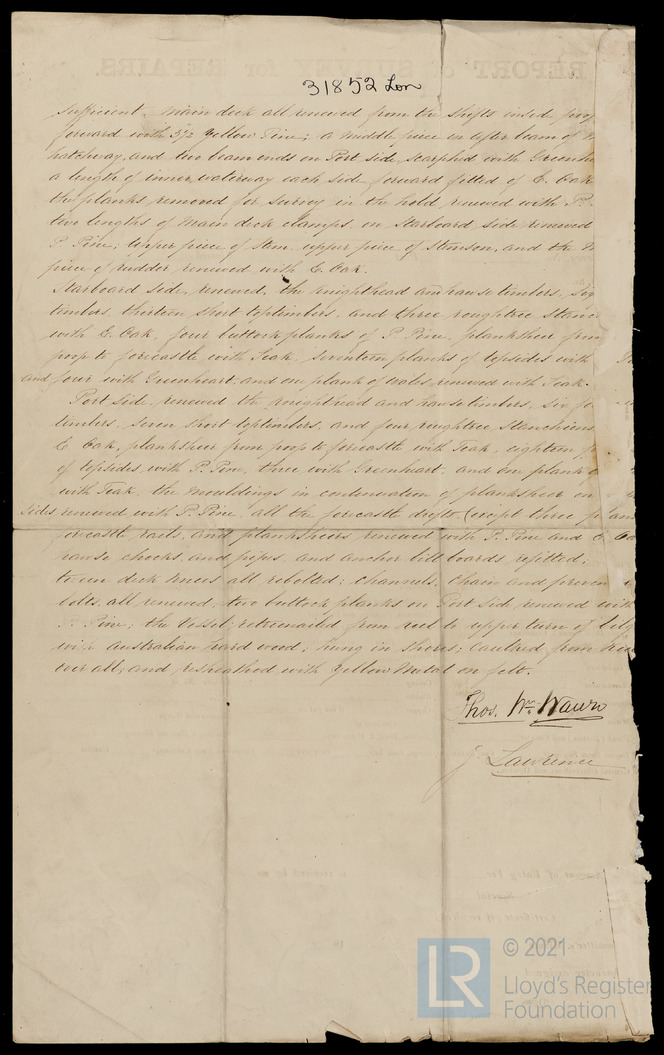 31852 Lon
sufficient. Main deck all renewed from the shifts inside poop
forward with 3½ Yellow Pine; a middle piece in after beam of
hatchway, and two beam ends on Port side scarphed with Greenhe
a length of inner waterway each side forward fitted of E. Oak
the planks removed for survey in the hold, renewed with P.
two lengths of main deck clamps, on Starboard side renewed
P. Pine; upper piece of Stem, upper piece of Stemson, and the
piece of rudder renewed with E. Oak.
Starboard Side, renewed, the knighthead and hawse timbers, six
timbers, thirteen short toptimbers, and three roughtree stanc
with E. Oak, four buttock planks of P. Pine, planksheer from
poop to forecastle with Teak, seventeen planks of topsides with
and four with Greenheart, and one plank of wales, renewed with Teak.
Port Side, renewed the knighthead and hawsetimbers, six fo
timbers, seven short toptimbers, and four roughtree Stanchions
E. Oak, planksheer from poop to forecastle with Teak, eighteen p
of topsides with P. Pine, three with Greenheart, and one plank o
with Teak, the mouldings in continuation of planksheer on
sides renewed with P. Pine, all the forecastle drifts (except three plan
forecastle rails, and planksheers renewed with P. Pine and E. Oa
hawse chocks, and pipes, and anchor bill boards refitted;
tween deck knees all rebolted; channels, chain and preven
bolts, all renewed, two buttock planks on Port side renewed with
P. Pine; the vessel, retreenailed from keel to upper turn of bilg
with Australian hard wood; hung in shores; caulked from kee
over all; and resheathed with Yellow Metal on felt.
Thos. Wm. Wawn
J. Lawrence
LR
© 2021
Lloyd's Register
Foundation